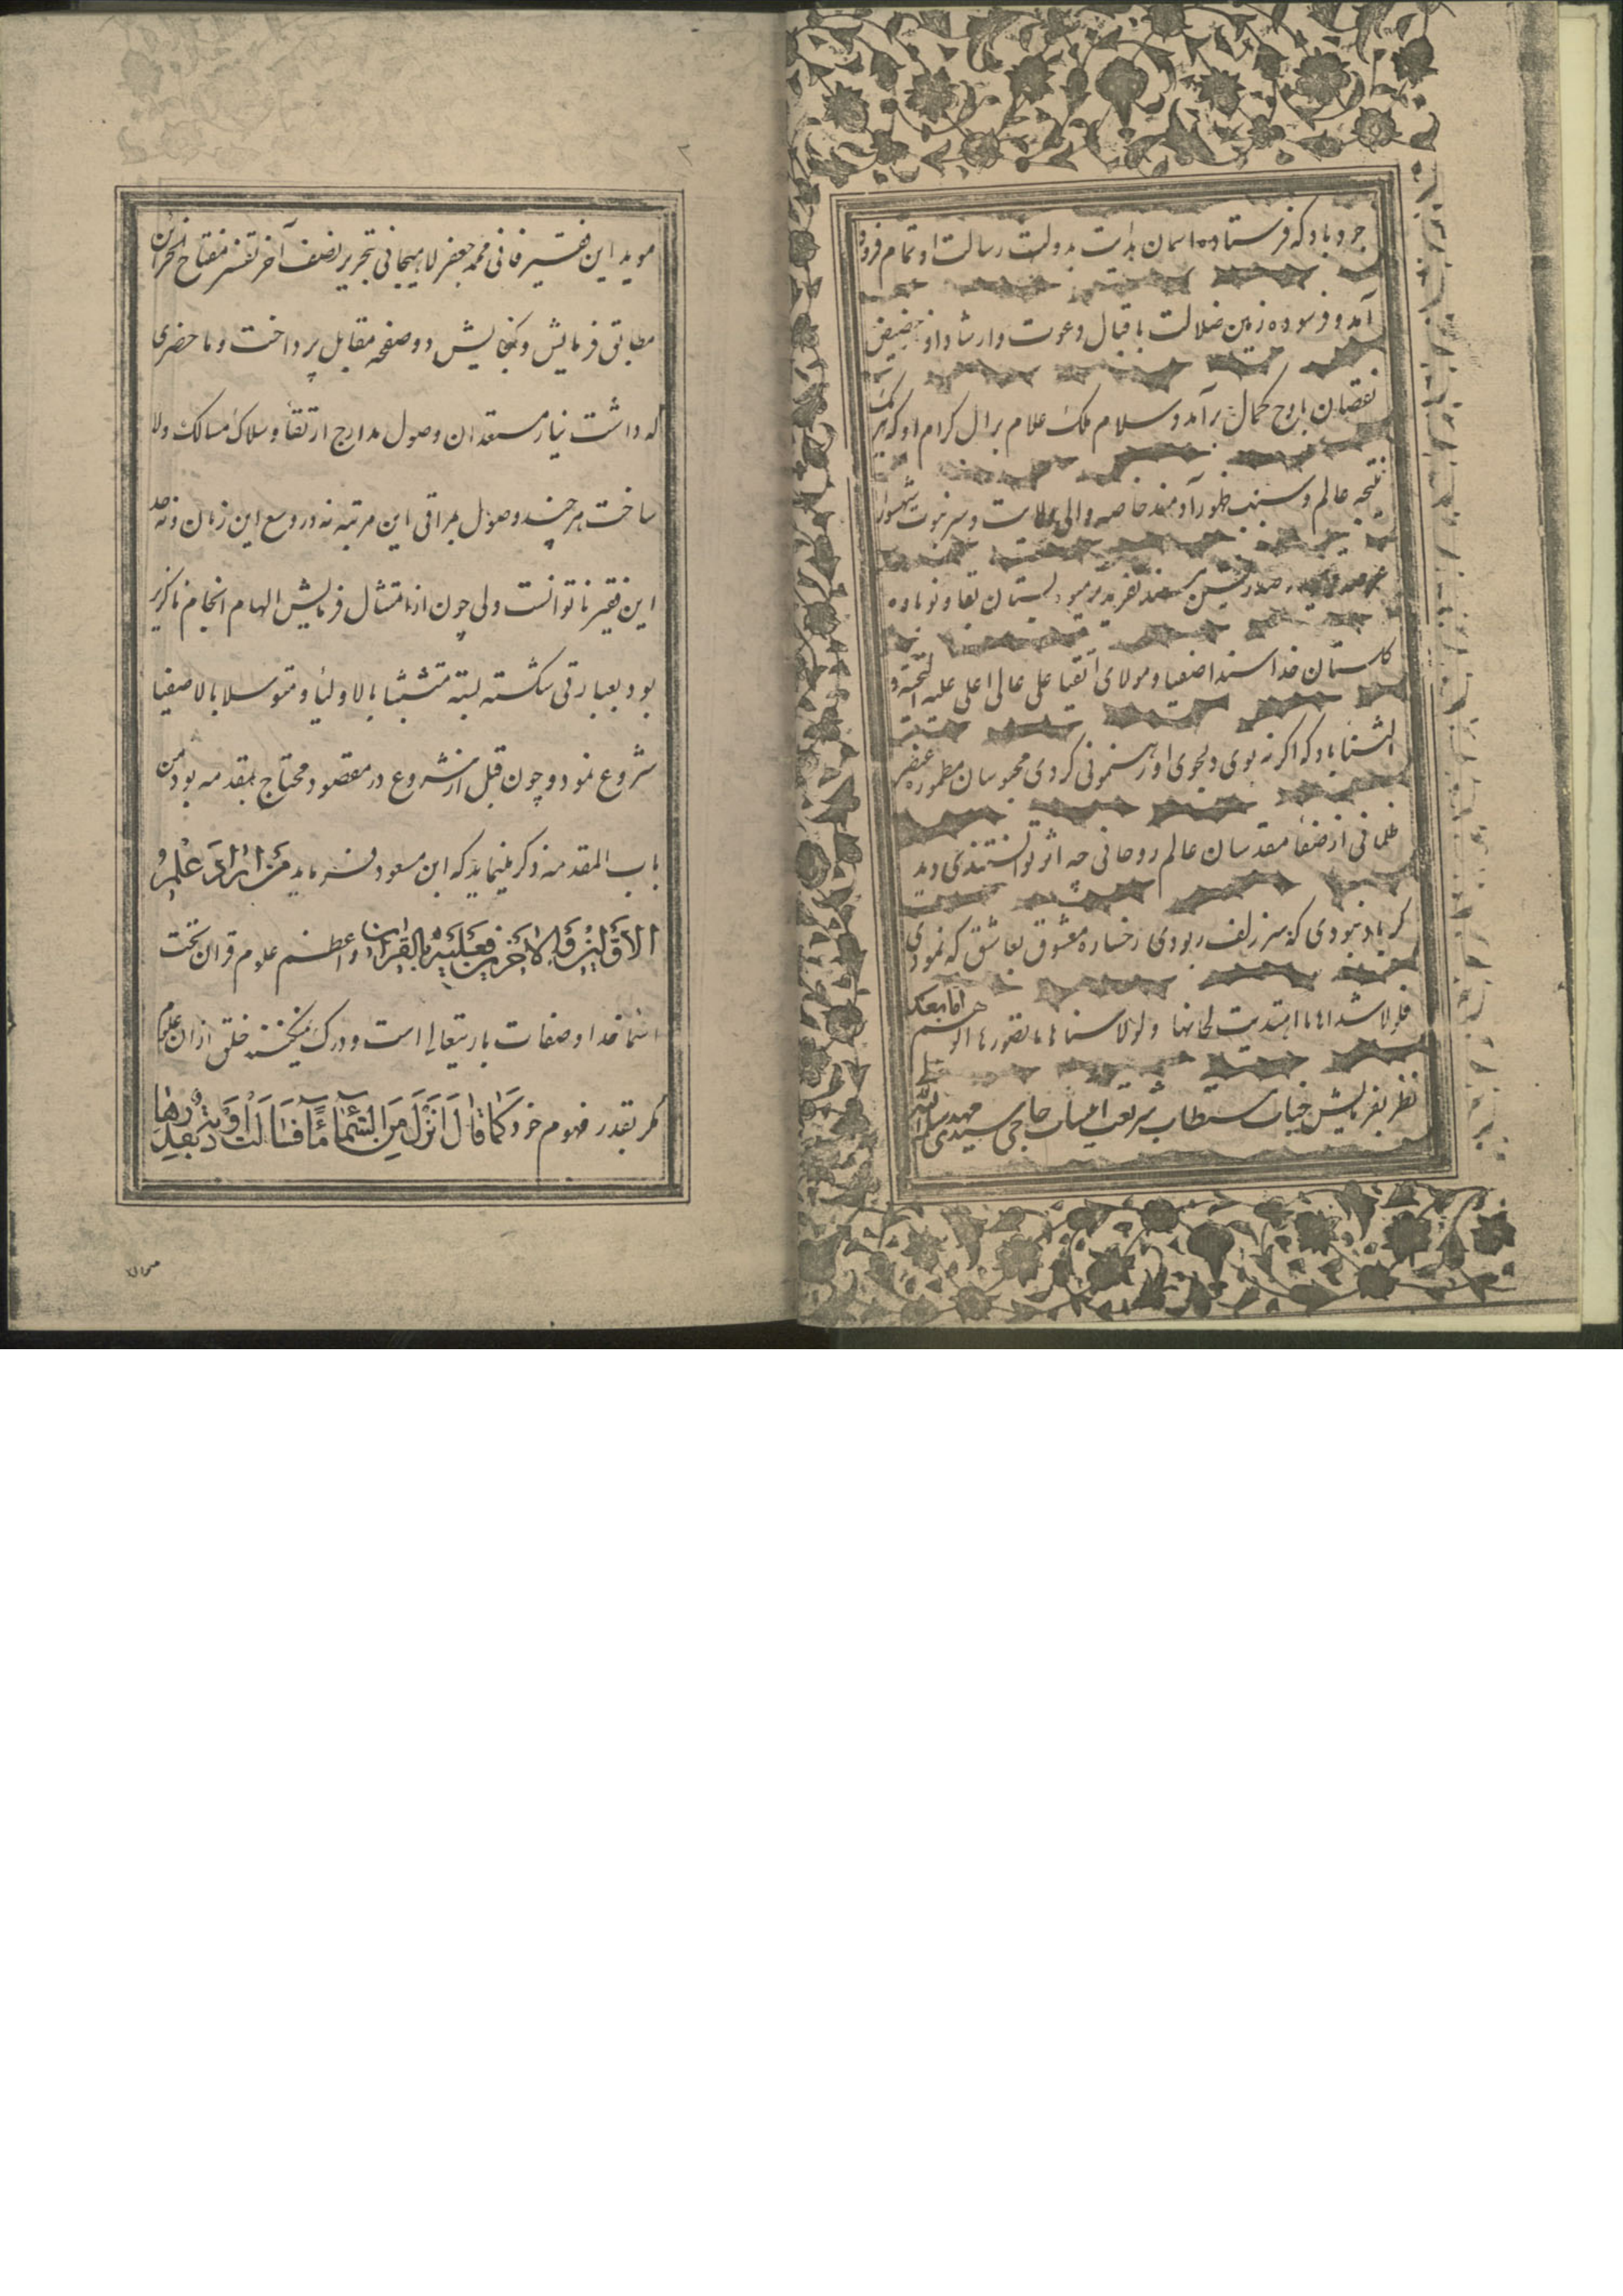 جرد باد که فرستاده اسمان هدایت بدولت رسالت او تمام فرود
آمد و فرسوده زمین ضلالت باقبال دعوت و ارشاد او از حضیض
نقصان باوج کمال برآمد و سلام ملک علام برال کرام او که هر یک
نتیجه عالم و سبب ظهور آدمند خاصه والی ولایت و سر نبوت شهسوار
صدرنشین مسند تفرید میوه بستان بقا و نوباوه
کلستان خدا سند اصفیا و مولای اتقیا علی عالی اعلی علیه التحیة و
الثنا باد که اکر نه بوی دلجوی او رهنمونی کردی محبوسان مطموره عنصر
ظلمانی از ضفا مقدسان عالم روحانی چه اثر توانستندی دید
کر باد نبودی که سر زلف ربودی رخساره معشوق بعاشق که نمودی
فلولا شداها ما اهتدیت لحانها ولولا سناها ما تصورها الوهم اما بعد
نظر بفرمایش جناب مستطاب شریعت انتساب حاجی سید مهدی سلمه الله
۲
موید این فقیر فانی محمد جعفر لاهیجانی بتحریر نصف آخر تفسیر مفتاح الخزائن
مطابق فرمایش و بکنجایش دو صفحه مقابل پرداخت و ما حضری
که داشت نیاز مستعدان وصول مدارج ارتقا و سلاک مسالک ولا
ساخت هر چند وصول بمراقی این مرتبه نه در وسع این زمان و نه حد
این فقیر ناتوانست ولی چون از امتثال فرمایش الهام انجام ناکزیر
بود بعبارتی شکسته بسته متشبثا بالاولیا و متوسلا بالاصفیا
شروع نمود و چون قبل از شروع در مقصود محتاج بمقدمه بود من
باب المقدمه ذکر مینماید که ابن مسعود میفرماید من اراد علم
الاولین و الاخرین فعلیه بالقران و اعظم علوم قران تحت
اسما خدا و صفات باریتعالی است و درک نمیکنند خلق از ان علوم
مکر بقدر فهوم خود کما قال انزل من السماء ماء فسالت اودیة بقدرها